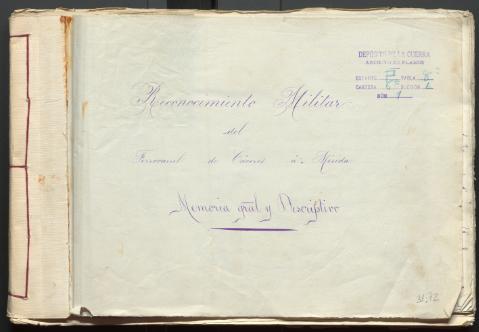 DEPÓSITO DE LA GUERRA
ARCHIVO DE PLANOS
ESTANTE TABLA
CARTERA DIVISIÓN
NÚM 1
Reconocimiento Militar
del
Ferrocarril de Cáceres á Mérida
Memoria gral y Descriptivo